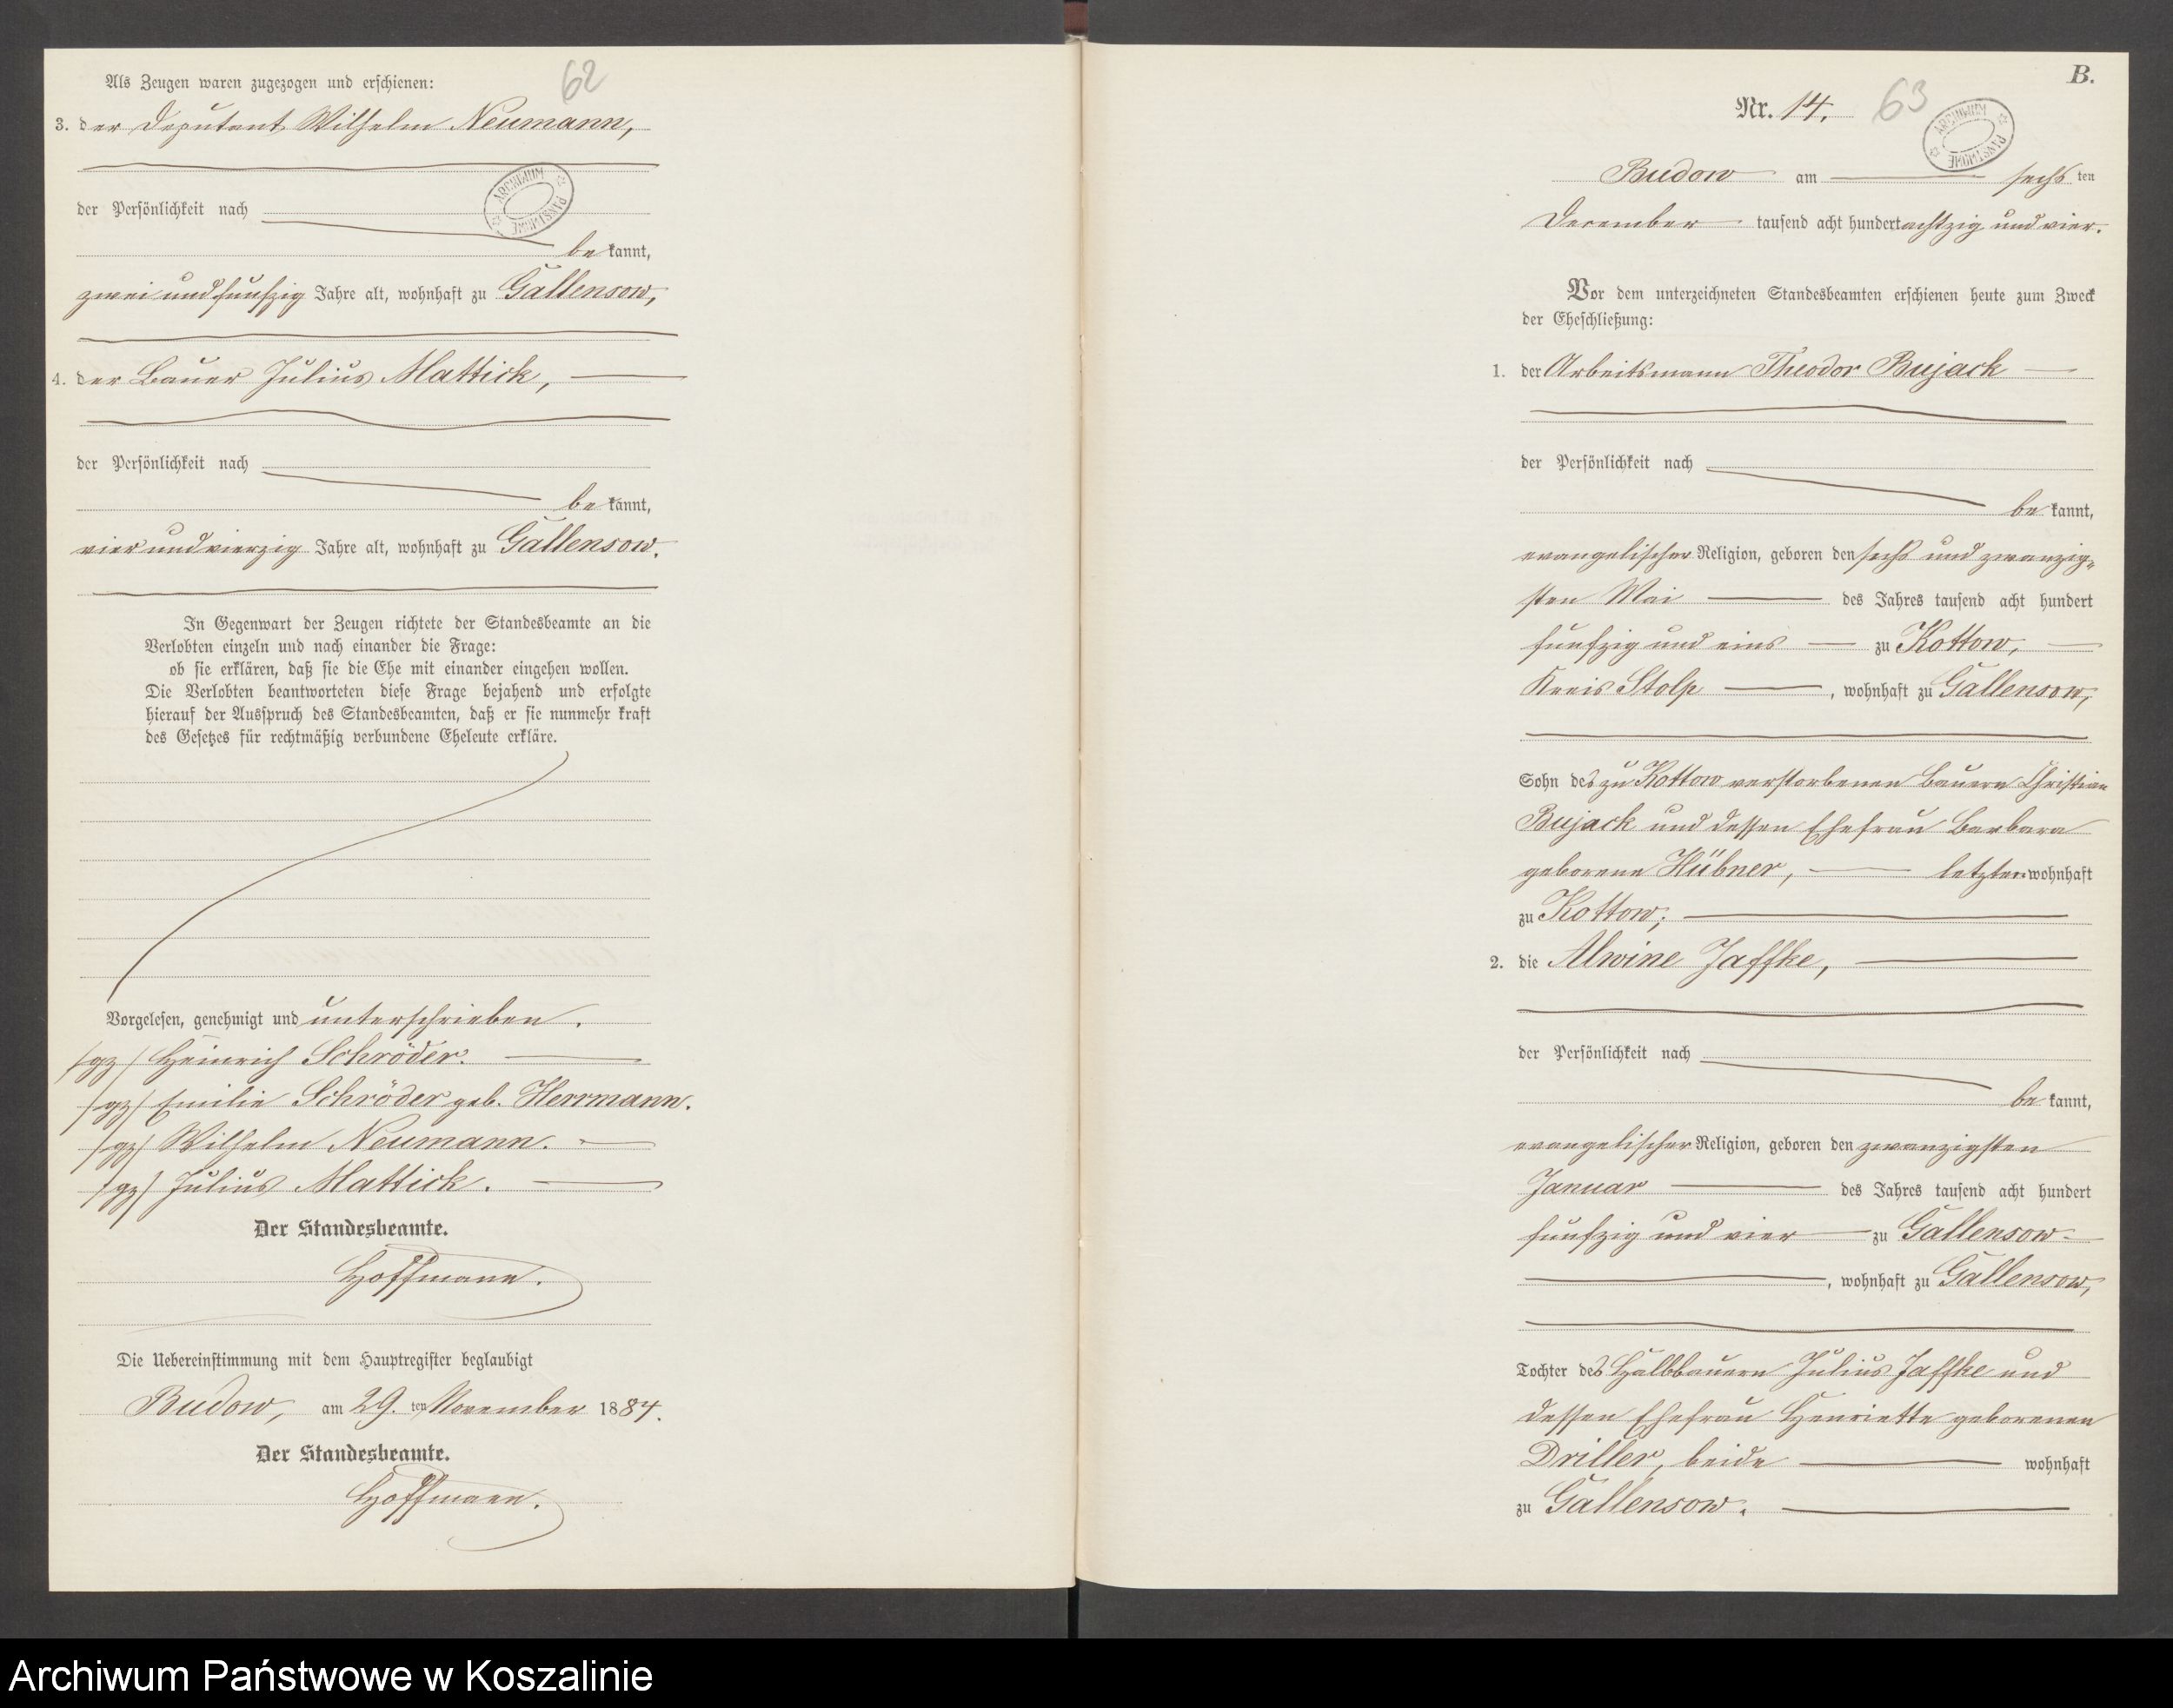 Als Zeugen waren zugezogen und erschienen:
62
3. der Deputant Wilhelm Neumann,
ARCHIWUM PAŃSTWOWE
der Persönlichkeit nach
be kannt,
zwei und funfzig Jahre alt, wohnhaft zu Gallensow,
4. der Bauer Julius Mattick,
der Persönlichkeit nach
be kannt,
vier und vierzig Jahre alt, wohnhaft zu Gallensow.
In Gegenwart der Zeugen richtete der Standesbeamte an die
Verlobten einzeln und nach einander die Frage:
ob sie erklären, daß sie die Ehe mit einander eingehen wollen.
Die Verlobten beantworteten diese Frage bejahend und erfolgte
hierauf der Ausspruch des Standesbeamten, daß er sie nunmehr kraft
des Gesetzes für rechtmäßig verbundene Eheleute erkläre.
Vorgelesen, genehmigt und unterschrieben.
/gz/ Heinrich Schröder.
/gz/ Emilie Schröder geb. Herrmann.
/gz/ Wilhelm Neumann.
/gz/ Julius Mattick.
Der Standesbeamte.
Hoffmann.
Die Uebereinstimmung mit dem Hauptregister beglaubigt
Budow, am 29. ten November 1884.
Der Standesbeamte.
Hoffmann.
B.
Nr. 14. 63
ARCHIWUM PAŃSTWOWE
Budow am sechs ten
December tausend acht hundert achtzig und vier.
Vor dem unterzeichneten Standesbeamten erschienen heute zum Zweck
der Eheschließung:
1. der Arbeitsmann Theodor Bujack
der Persönlichkeit nach
be kannt,
evangelischer Religion, geboren den sechs und zwanzig-
sten Mai des Jahres tausend acht hundert
funfzig und eins zu Kottow,
Kreis Stolp, wohnhaft zu Gallensow,
Sohn des zu Kottow verstorbenen Bauern Christian
Bujack und dessen Ehefrau Barbara
geborene Hübner, letztere wohnhaft
zu Kottow;
2. die Alwine Jaffke,
der Persönlichkeit nach
be kannt,
evangelischer Religion, geboren den zwanzigsten
Januar des Jahres tausend acht hundert
funfzig und vier zu Gallensow
, wohnhaft zu Gallensow,
Tochter des Halbbauern Julius Jaffke und
dessen Ehefrau Henriette geborenen
Driller, beide wohnhaft
zu Gallensow.
Archiwum Państwowe w Koszalinie